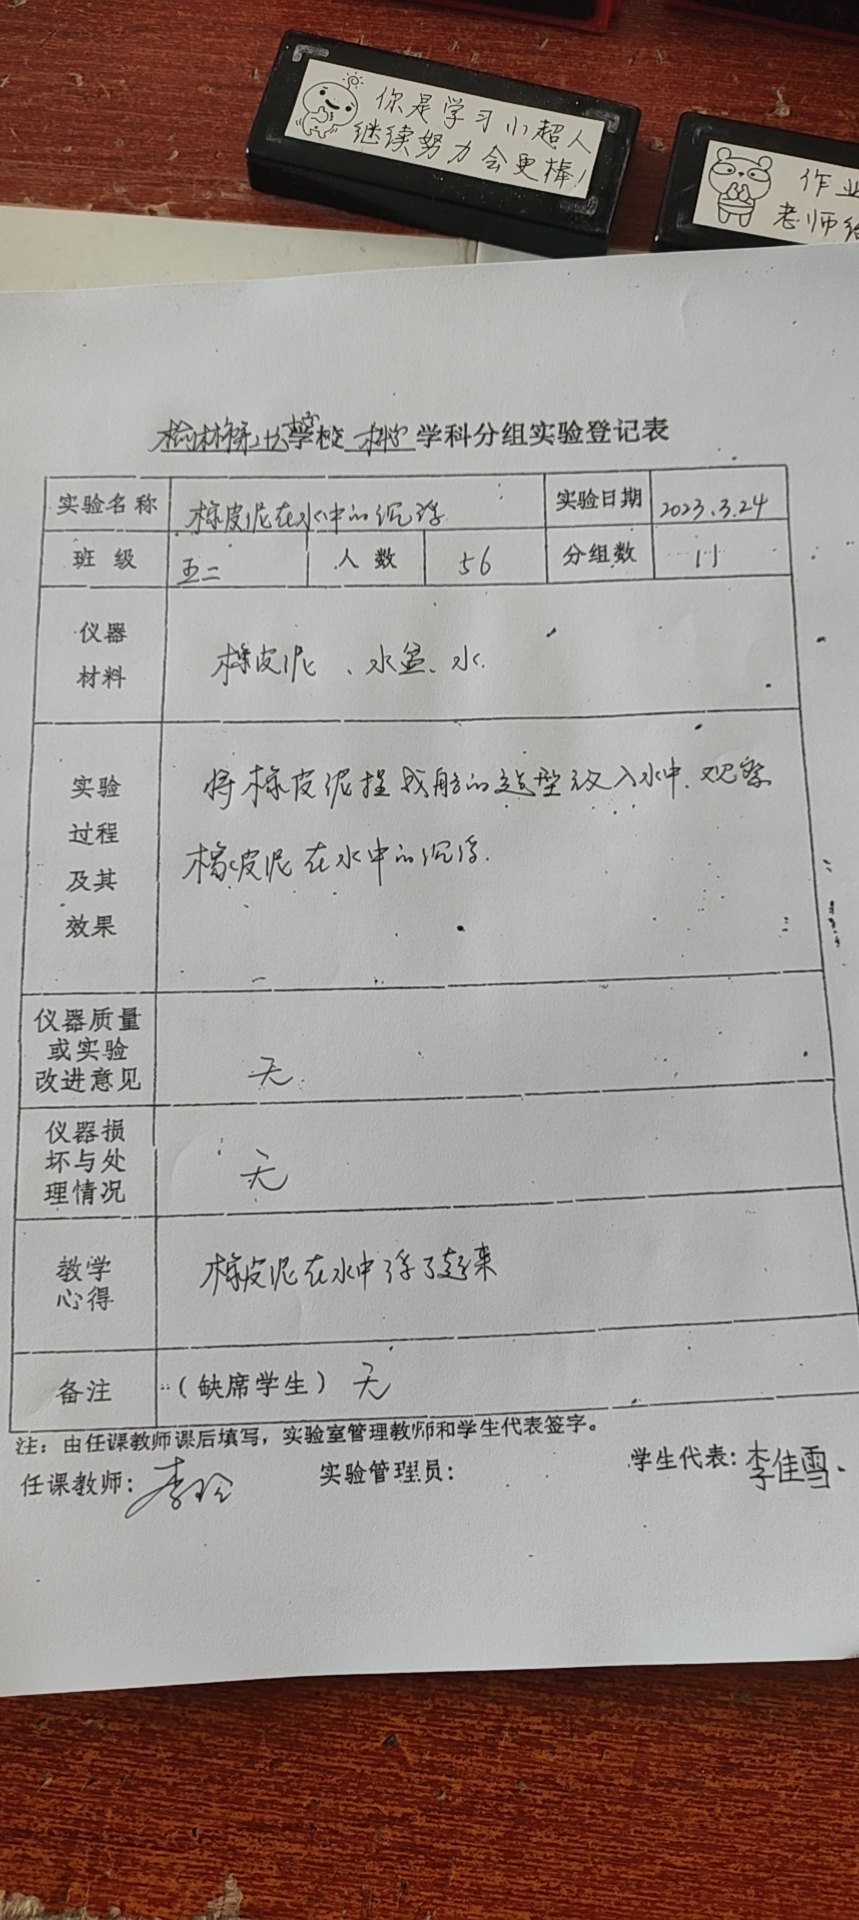 你是学习小超人
继续努力会更棒!
作业
老师给
学校 科学 学科分组实验登记表
实验名称 橡皮泥在水中的沉浮 实验日期 2023.3.24
班 级 五二 人 数 56 分组数 11
仪器
材料
橡皮泥、水盆、水.
实验
过程
及其
效果
将橡皮泥捏成船的造型放入水中.观察
橡皮泥在水中的沉浮.
仪器质量
或实验
改进意见
无.
仪器损
坏与处
理情况
无
教学
心得
橡皮泥在水中浮了起来
备注 (缺席学生) 无
注: 由任课教师课后填写, 实验室管理教师和学生代表签字。
任课教师: 李 实验管理员: 学生代表: 李佳雪